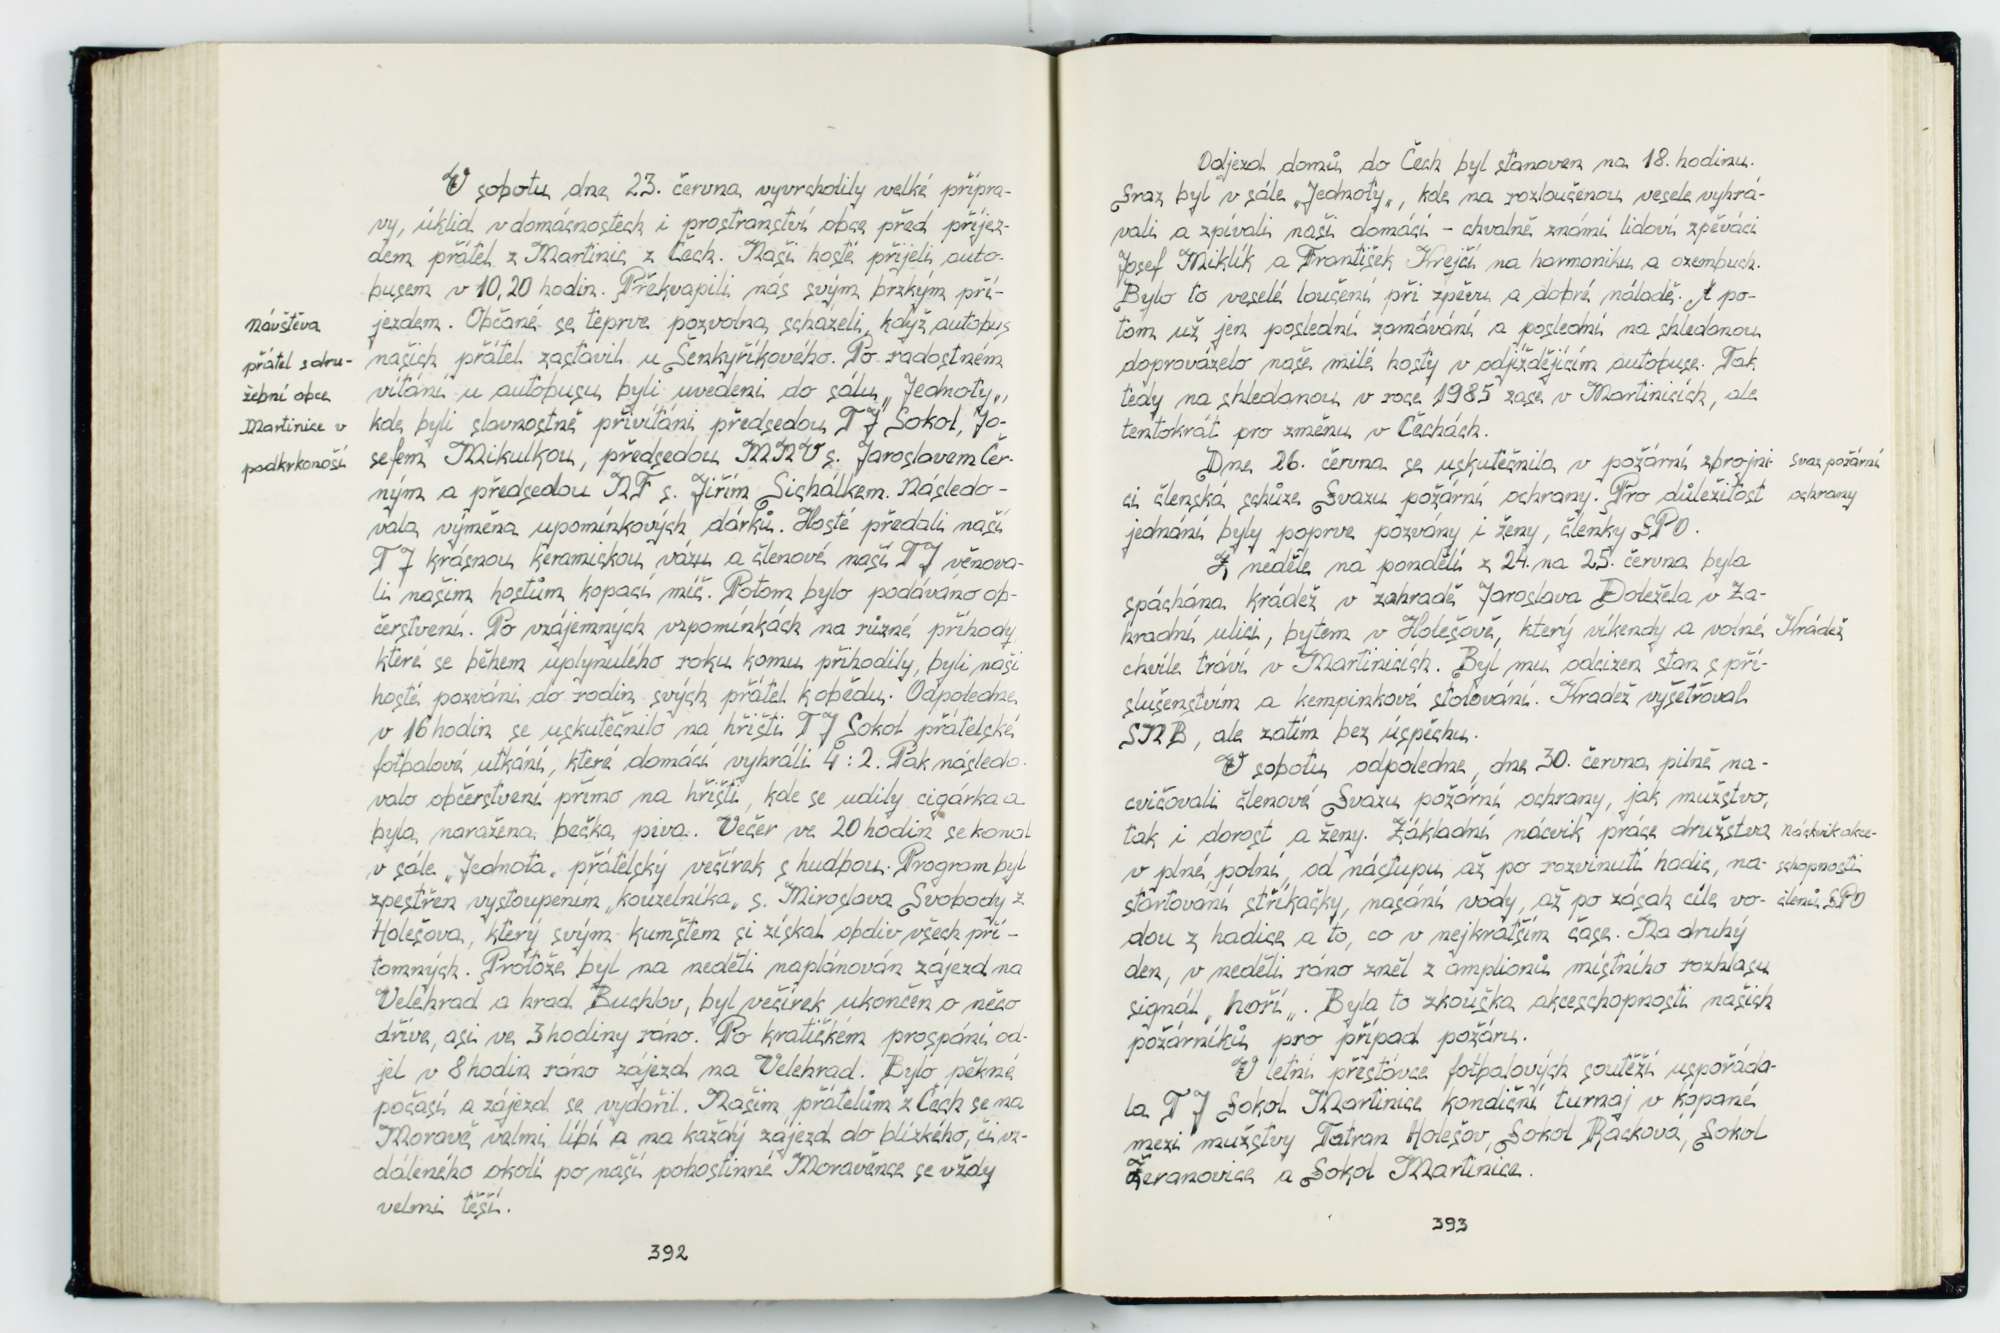 V sobotu dne 23. června vyvrcholily velké přípra-
vy, úklid v domácnostech i prostranství obce před příjez-
dem přátel z Martinic z Čech. Naši hosté přijeli auto-
busem v 10,20 hodin. Překvapili nás svým brzkým pří-
jezdem. Občané se teprve pozvolna scházeli, když autobus
našich přátel zastavil u Šenkyříkového. Po radostném
vítání u autobusu byli uvedeni do sálu „Jednoty",
kde byli slavnostně přivítáni předsedou TJ Sokol, Jo-
sefem Mikulkou, předsedou MNV s. Jaroslavem Čer-
ným a předsedou NF s. Jiřím Sichálkem. Následo-
vala výměna upomínkových dárků. Hosté předali naší
TJ krásnou keramickou vázu a členové naší TJ věnova-
li našim hostům kopací míč. Potom bylo podáváno ob-
čerstvení. Po vzájemných vzpomínkách na různé příhody
které se během uplynulého roku komu přihodily, byli naši
hosté pozváni do rodin svých přátel k obědu. Odpoledne
v 16 hodin se uskutečnilo na hřišti TJ Sokol přátelské
fotbalové utkání, které domácí vyhráli 4:2. Pak následo-
valo občerstvení přímo na hřišti, kde se udily cigárka a
byla naražena bečka piva. Večer ve 20 hodin se konal
v sále „Jednota" přátelský večírek s hudbou. Program byl
zpestřen vystoupením „kouzelníka" s. Miroslava Svobody z
Holešova, který svým kumštem si získal obdiv všech pří-
tomných. Protože byl na neděli naplánován zájezd na
Velehrad a hrad Buchlov, byl večírek ukončen o něco
dříve, asi ve 3 hodiny ráno. Po kratičkém prospání od-
jel v 8 hodin ráno zájezd na Velehrad. Bylo pěkné
počasí a zájezd se vydařil. Našim přátelům z Čech se na
Moravě velmi líbí a na každý zájezd do blízkého, či vz-
dáleného okolí po naší pohostinné Moravěnce se vždy
velmi těší.
Návštěva
přátel s dru-
žební obce
Martinice v
podkrkonoší
392
Odjezd domů do Čech byl stanoven na 18. hodinu.
Sraz byl v sále „Jednoty", kde na rozloučenou vesele vyhrá-
vali a zpívali naši domácí - chvalně známí lidoví zpěváci
Josef Miklík a František Krejčí na harmoniku a ozembuch.
Bylo to veselé loučení při zpěvu a dobré náladě. A po-
tom už jen poslední zamávání a poslední na shledanou
doprovázelo naše milé hosty v odjíždějícím autobuse. Tak
tedy na shledanou v roce 1985 zase v Martinicích, ale
tentokrát pro změnu v Čechách.
Dne 26. června se uskutečnila v požární zbrojni-
ci členská schůze Svazu požární ochrany. Pro důležitost
jednání byly poprve pozvány i ženy, členky SPO.
Svaz požární
ochrany
Z neděle na pondělí z 24. na 25. června byla
spáchána krádež v zahradě Jaroslava Doležela v Za-
hradní ulici, bytem v Holešově, který víkendy a volné
chvíle tráví v Martinicích. Byl mu odcizen stan s pří-
slušenstvím a kempinkové stolování. Kradež vyšetřoval
SNB, ale zatím bez úspěchu.
Krádež
V sobotu odpoledne, dne 30. června pilně na-
cvičovali členové Svazu požární ochrany, jak mužstvo,
tak i dorost a ženy. Základní nácvik práce družstva
v plné polní, od nástupu až po rozvinutí hadic, na-
startování stříkačky, nasání vody, až po zásah cíle vo-
dou z hadice a to, co v nejkratším čase. Na druhý
den, v neděli ráno zněl z amplionů místního rozhlasu
signál „hoří". Byla to zkouška akceschopnosti našich
požárníků pro případ požáru.
Nácvik akce-
schopnosti
členů SPO
V letní přestávce fotbalových soutěží uspořáda-
la TJ Sokol Martinice kondiční turnaj v kopané
mezi mužstvy Tatran Holešov, Sokol Racková, Sokol
Žeranovice a Sokol Martinice.
393